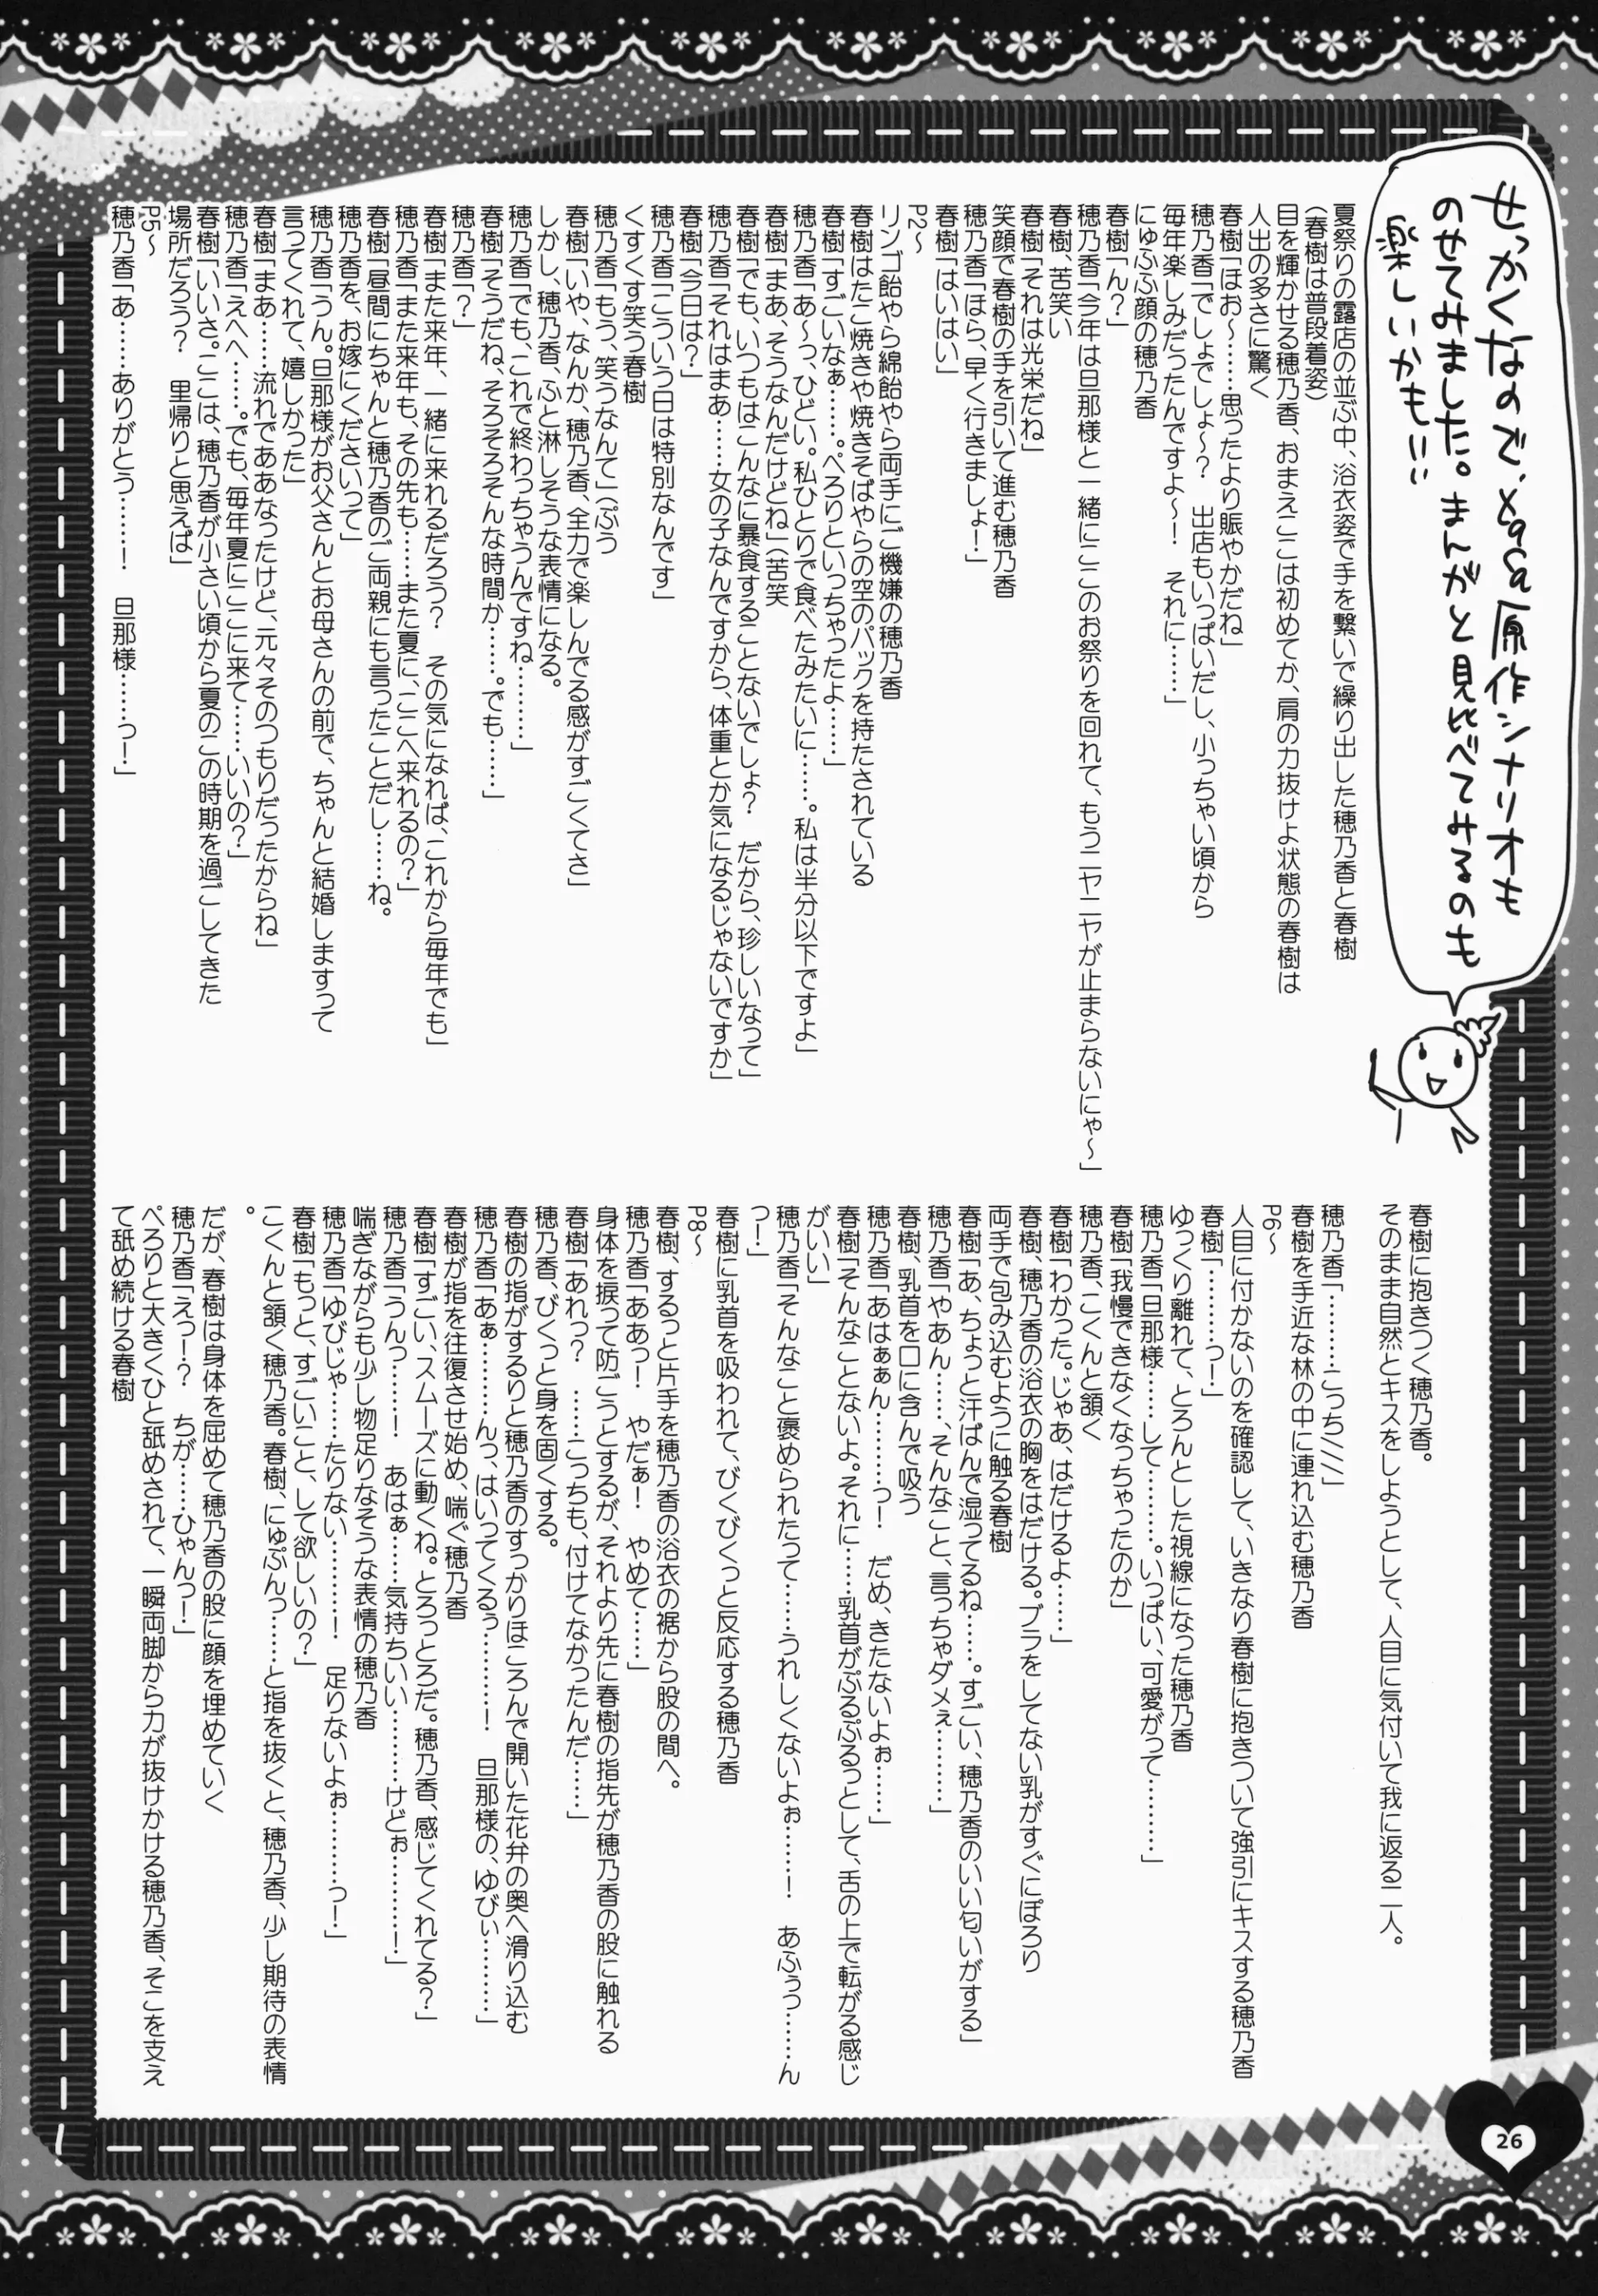 せっかくなので、xasa原作シナリオも
のせてみました。まんがと見比べてみるのも
楽しいかも!!!
夏祭りの露店の並ぶ中、浴衣姿で手を繋いで繰り出した穂乃香と春樹
(春樹は普段着姿)
目を輝かせる穂乃香、おまえここは初めてか、肩の力抜けよ状態の春樹は
人出の多さに驚く
春樹「ほお～……思ったより賑やかだね」
穂乃香「でしょでしょ～？　出店もいっぱいだし、小っちゃい頃から
毎年楽しみだったんですよ～！　それに……」
にゅふふ顔の穂乃香
春樹「ん？」
穂乃香「今年は旦那様と一緒にここのお祭りを回れて、もうニヤニヤが止まらないにゃ～」
春樹、苦笑い
春樹「それは光栄だね」
笑顔で春樹の手を引いて進む穂乃香
穂乃香「ほら、早く行きましょ！」
春樹「はいはい」
P2～
リンゴ飴やら綿飴やら両手にご機嫌の穂乃香
春樹はたこ焼きや焼きそばやらの空のパックを持たされている
春樹「すごいなぁ……。ぺろりといっちゃったよ……」
穂乃香「あ～っ、ひどい。私ひとりで食べたみたいに……。私は半分以下ですよ」
春樹「まあ、そうなんだけどね」(苦笑
春樹「でも、いつもはこんなに暴食することないでしょ？　だから、珍しいなって」
穂乃香「それはまあ……女の子なんですから、体重とか気になるじゃないですか」
春樹「今日は？」
穂乃香「こういう日は特別なんです」
くすくす笑う春樹
穂乃香「もう、笑うなんて」(ぷう
春樹「いや、なんか、穂乃香、全力で楽しんでる感がすごくてさ」
しかし、穂乃香、ふと淋しそうな表情になる。
穂乃香「でも、これで終わっちゃうんですね………」
春樹「そうだね、そろそろそんな時間か……。でも……」
穂乃香「？」
春樹「また来年、一緒に来れるだろう？　その気になれば、これから毎年でも」
穂乃香「また来年も、その先も……また夏に、ここへ来れるの？」
春樹「昼間にちゃんと穂乃香のご両親にも言ったことだし……ね。
穂乃香を、お嫁にくださいって」
穂乃香「うん。旦那様がお父さんとお母さんの前で、ちゃんと結婚しますって
言つてくれて、嬉しかった」
春樹「まあ……流れでああなったけど、元々そのつもりだったからね」
穂乃香「えへへ……。でも、毎年夏にここに来て……いいの？」
春樹「いいさ。ここは、穂乃香が小さい頃から夏のこの時期を過ごしてきた
場所だろう？　里帰りと思えば」
P5～
穂乃香「あ……ありがとう……！　旦那様……っ！」
春樹に抱きつく穂乃香。
そのまま自然とキスをしようとして、人目に気付いて我に返る二人。
穂乃香「………こっち///」
春樹を手近な林の中に連れ込む穂乃香
P6～
人目に付かないのを確認して、いきなり春樹に抱きついて強引にキスする穂乃香
春樹「………っ！」
ゆっくり離れて、とろんとした視線になった穂乃香
穂乃香「旦那様……して………。いっぱい、可愛がって………」
春樹「我慢できなくなっちゃったのか」
穂乃香、こくんと頷く
春樹「わかった。じゃあ、はだけるよ……」
春樹、穂乃香の浴衣の胸をはだける。ブラをしてない乳がすぐにぽろり
両手で包み込むように触る春樹
春樹「あ、ちょっと汗ばんで湿ってるね……。すごい、穂乃香のいい匂いがする」
穂乃香「やあん……、そんなこと、言っちゃダメぇ………」
春樹、乳首を口に含んで吸う
穂乃香「あはぁぁん………っ！　だめ、きたないよぉ……」
春樹「そんなことないよ。それに……乳首がぷるぷるっとして、舌の上で転がる感じ
がいい」
穂乃香「そんなこと褒められたって……うれしくないよぉ………！　あふぅっ……ん
っ！」
春樹に乳首を吸われて、びくびくっと反応する穂乃香
P8～
春樹、するっと片手を穂乃香の浴衣の裾から股の間へ。
穂乃香「ああっ！　やだぁ！　やめて……」
身体を捩って防ごうとするが、それより先に春樹の指先が穂乃香の股に触れる
春樹「あれっ？　……こっちも、付けてなかったんだ……」
穂乃香、びくっと身を固くする。
春樹の指がするりと穂乃香のすっかりほころんで開いた花弁の奥へ滑り込む
穂乃香「あぁ………んっ、はいってくるぅ………！　旦那様の、ゆびぃ………」
春樹が指を往復させ始め、喘ぐ穂乃香
春樹「すごい、スムーズに動くね。とろっとろだ。穂乃香、感じてくれてる？」
穂乃香「うんっ……！　あはぁ……気持ちいい………けどぉ………！」
喘ぎながらも少し物足りなそうな表情の穂乃香
穂乃香「ゆびじゃ……たりない………！　足りないよぉ………っ！」
春樹「もっと、すごいこと、して欲しいの？」
こくんと頷く穂乃香。春樹、にゅぷんっ……と指を抜くと、穂乃香、少し期待の表情
。
だが、春樹は身体を屈めて穂乃香の股に顔を埋めていく
穂乃香「えっ！？　ちが……ひゃんっ！」
ぺろりと大きくひと舐めされて、一瞬両脚から力が抜けかける穂乃香、そこを支え
て舐め続ける春樹
26